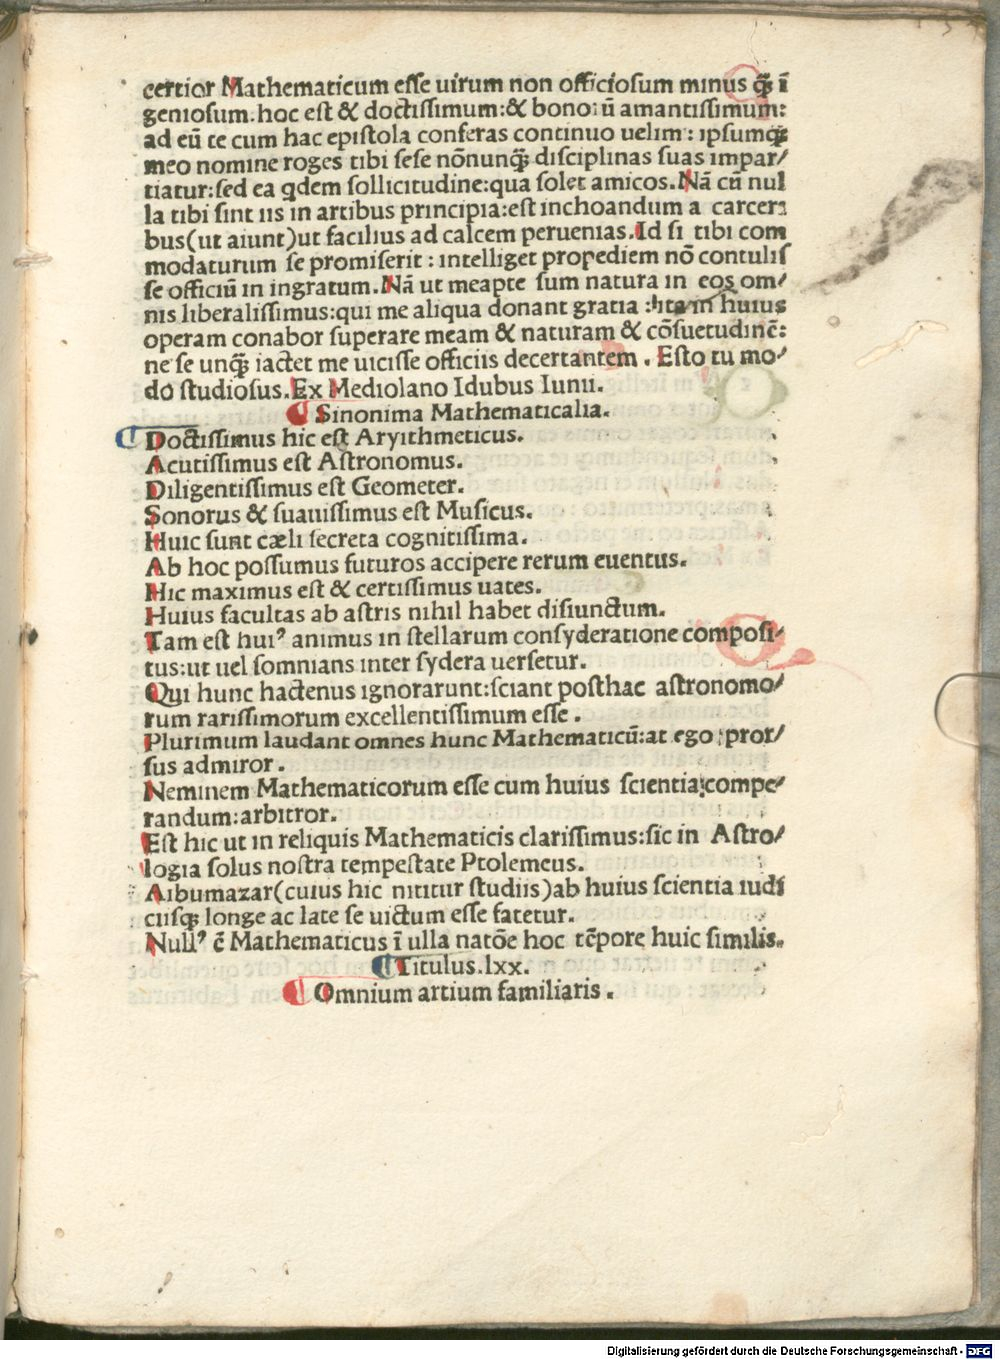 certior Mathematicum eſſe uirum non officioſum minus q̃ ī
genioſum.hoc eſt & doctiſſimum:& bonoꝝ ū amantiſſimum:
ad eū te cum hac epiſtola conferas continuo uelim: ipſumq;
meo nomine roges tibi ſeſe nōnunq̃ diſciplinas ſuas impar/
tiatur:ſed ea qdem ſollicitudine:qua ſolet amicos.Nā cū nul
la tibi ſint iis in artibus principia:eſt inchoandum a carceri
bus(ut aiunt)ut facilius ad calcem peruenias.Id ſi tibi com
modaturum ſe promiſerit: intelliget propediem nō contuliſ
ſe officiū in ingratum.Nā ut meapte ſum natura in eos om/
nis liberaliſſimus:qui me aliqua donant gratia :ita in huius
operam conabor ſuperare meam & naturam & cōſuetudinē:
ne ſe unq̃ iactet me uiciſſe officiis decertantem. Eſto tu mo/
do ſtudioſus.Ex Mediolano Idubus Iunii.
¶ Sinonima Mathematicalia.
¶ Doctiſſimus hic eſt Aryithmeticus.
Acutiſſimus eſt Aſtronomus.
Diligentiſſimus eſt Geometer.
Sonorus & ſuauiſſimus eſt Muſicus.
Huic ſunt cæli ſecreta cognitiſſima.
Ab hoc poſſumus futuros accipere rerum euentus.
Hic maximus eſt & certiſſimus uates.
Huius facultas ab aſtris nihil habet diſiunctum.
Tam eſt huiꝰ animus in ſtellarum conſyderatione compoſi/
tus:ut uel ſomnians inter ſydera uerſetur.
Qui hunc hactenus ignorarunt:ſciant poſthac aſtronomo/
rum rariſſimorum excellentiſſimum eſſe.
Plurimum laudant omnes hunc Mathematicū:at ego pror/
ſus admiror.
Neminem Mathematicorum eſſe cum huius ſcientia:compe/
randum:arbitror.
Eſt hic ut in reliquis Mathematicis clariſſimus:ſic in Aſtro/
logia ſolus noſtra tempeſtate Ptolemeus.
Albumazar(cuius hic nititur ſtudiis)ab huius ſcientia iudi
ciiſq; longe ac late ſe uictum eſſe fatetur.
Nullꝰ ē Mathematicus ī ulla natōe hoc tēpore huic ſimilis.
¶ Titulus.lxx.
¶ Omnium artium familiaris.
Digitalisierung gefördert durch die Deutsche Forschungsgemeinschaft - DFG